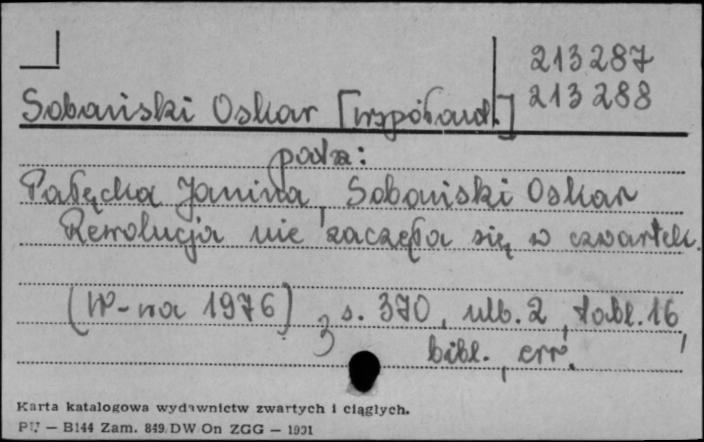 213287
213288
Sobański Oskar [współaut.]
patrz:
Pałęcka Janina, Sobański Oskar
Rewolucja nie zaczęła się w czwartek.
(W-wa 1976) s. 370, nlb. 2, tabl. 16,
bibl., err.
Karta katalogowa wydawnictw zwartych i ciągłych.
PU — B144 Zam. 849. DW On ZGG — 1991